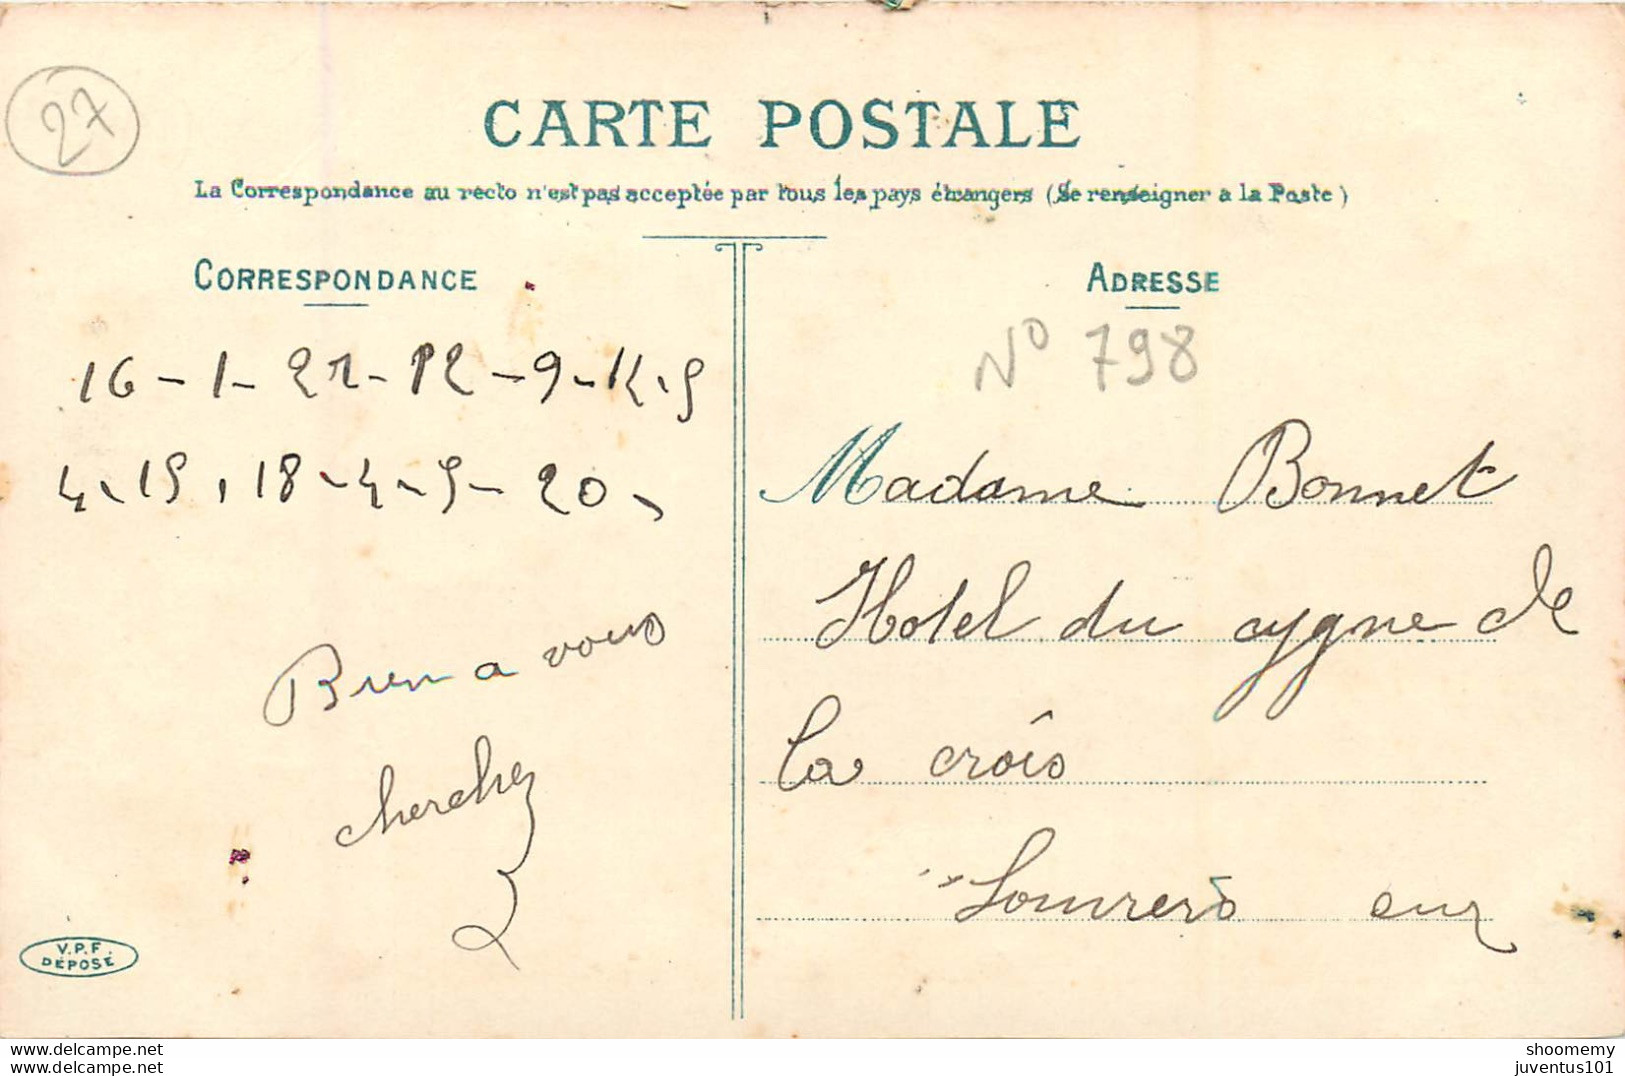 27
CARTE POSTALE
La Correspondance au recto n'est pas acceptée par tous les pays étrangers (Se renseigner a la Poste)
CORRESPONDANCE
16 - 1 - 21 - 12 - 9 - 14 - 5
4 - 15, 18 - 4 - 5 - 20 -
Bien a vous
cherchez
V.P.F.
DÉPOSÉ
ADRESSE
No 798
Madame Bonnet
Hotel du cygne de
la crois
Louvrers eur
delcampe.net
juventus101
shoomemy
juventus101